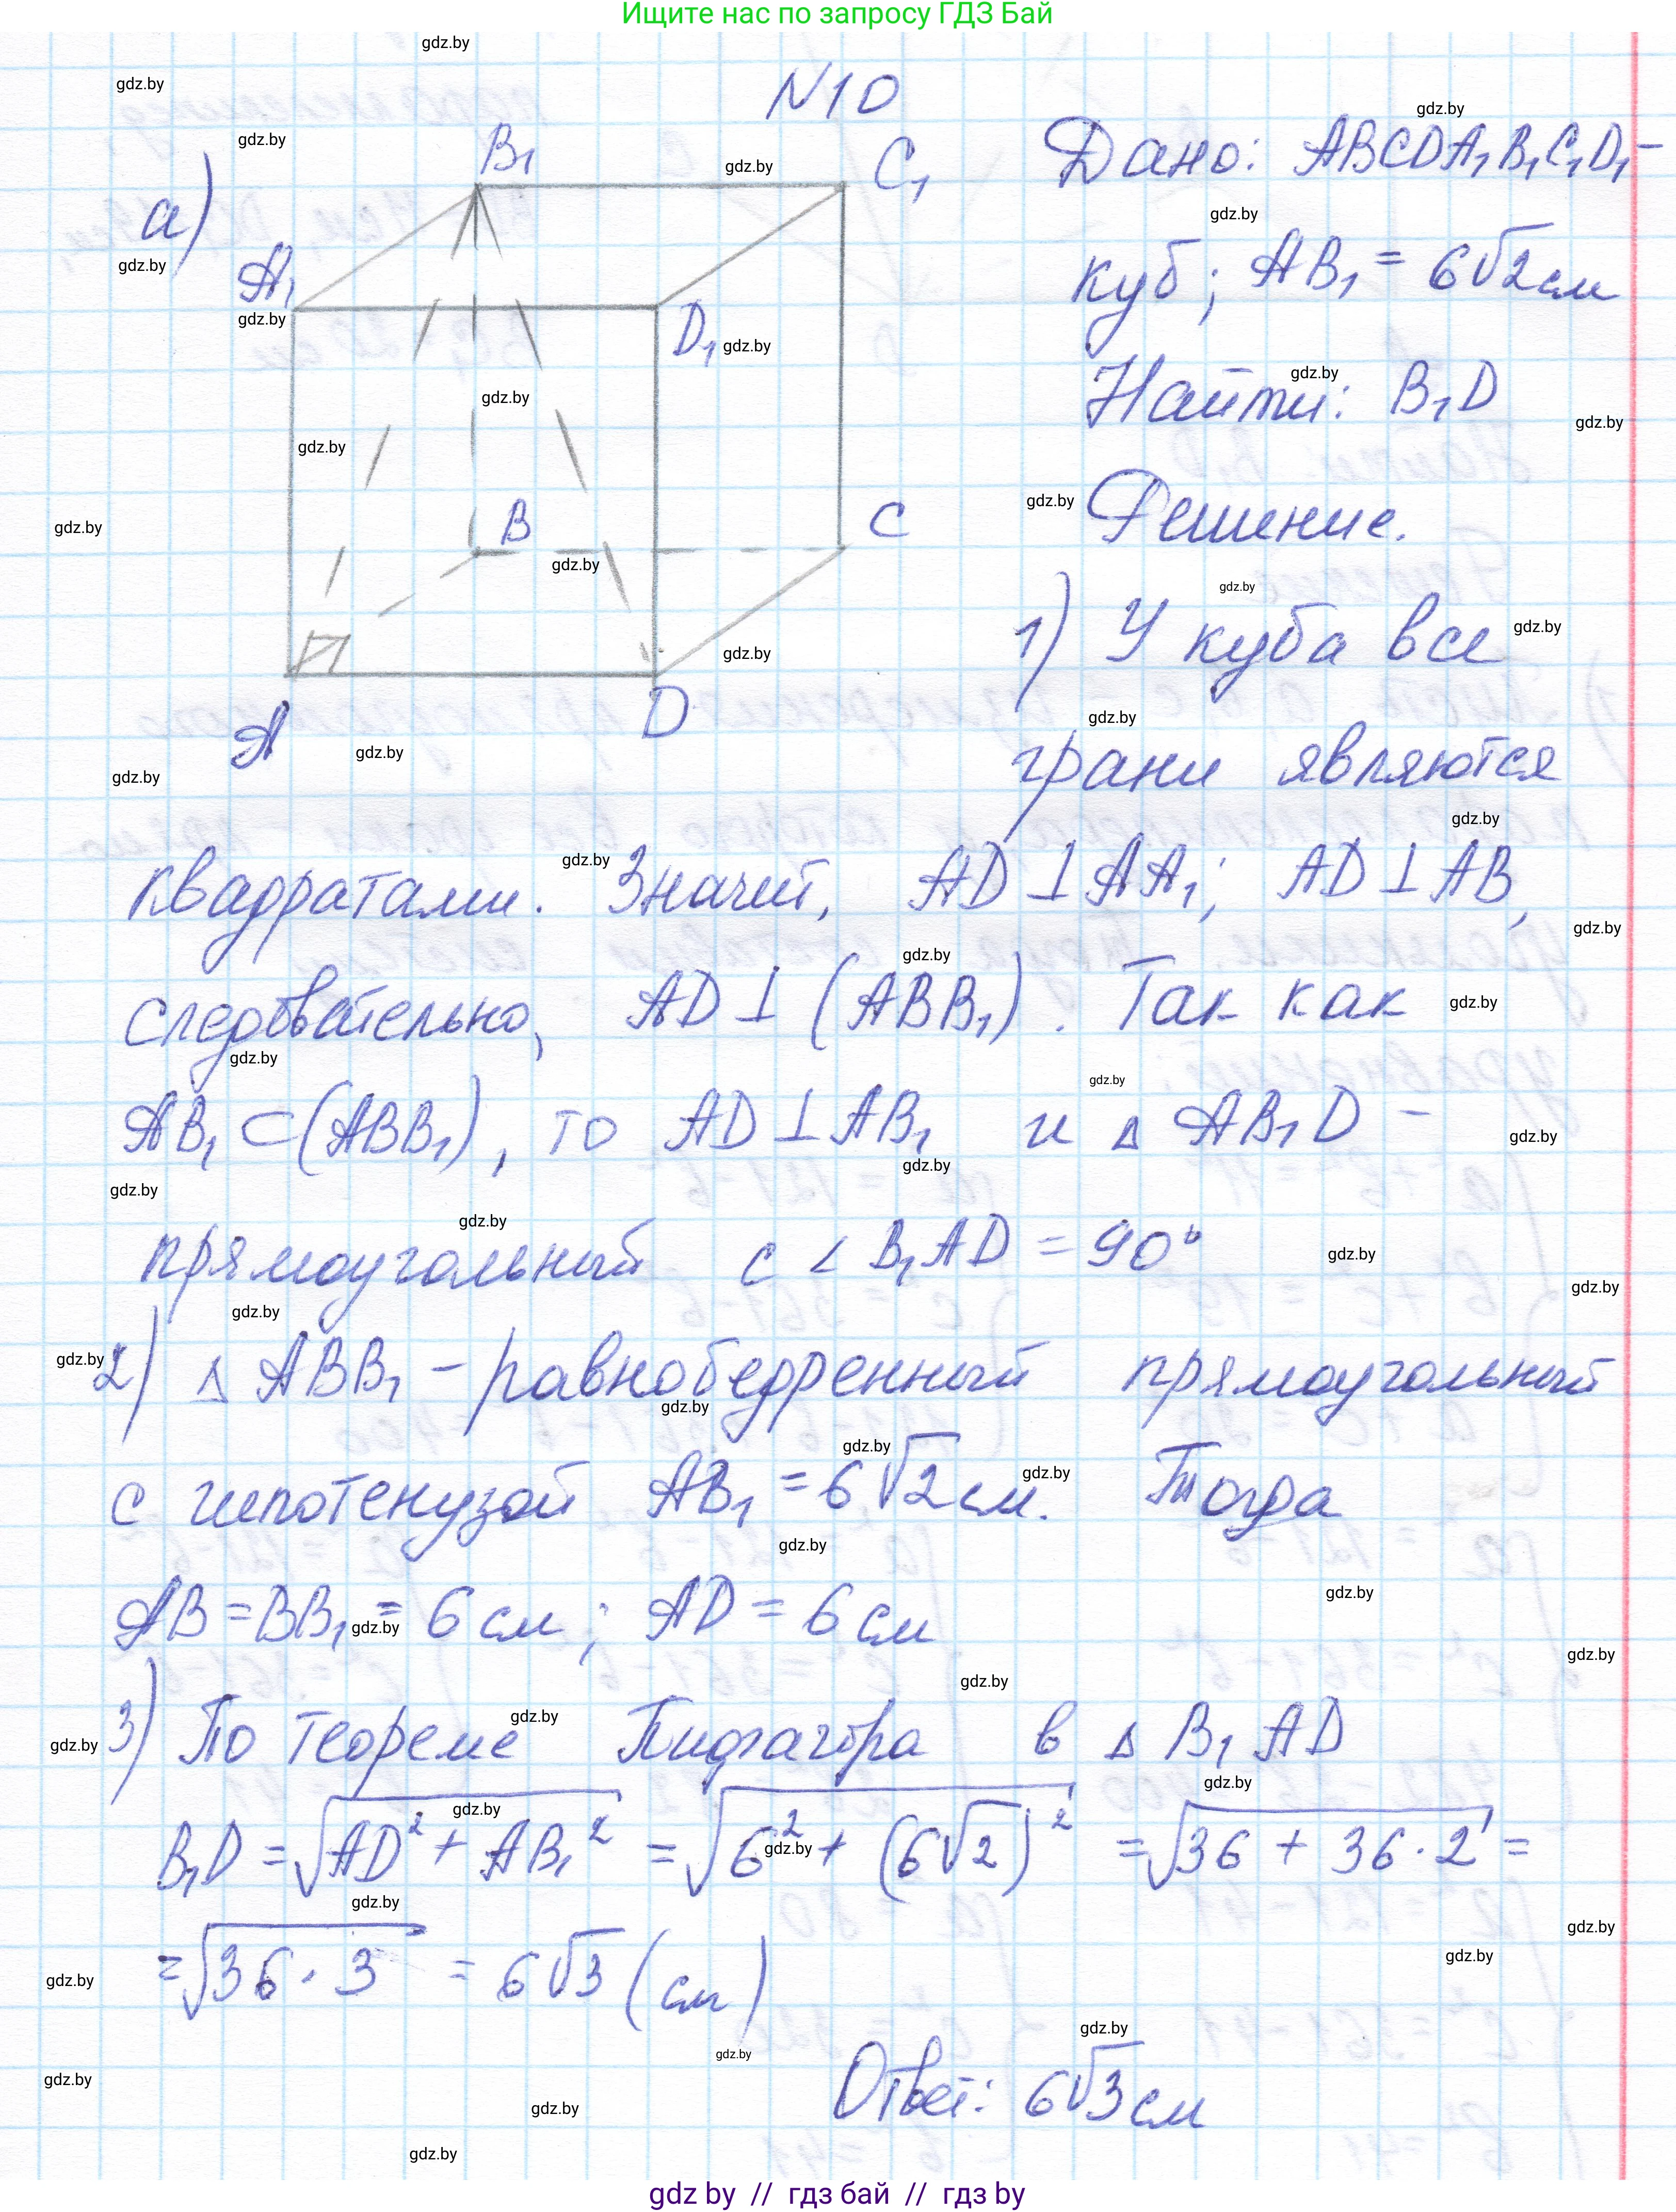 Ищите нас по запросу ГДЗ Бай
N10
а)
B₁
C₁
A₁
D₁
B
C
A
D
Дано: ABCDA₁B₁C₁D₁ –
куб; AB₁ = 6√2 см
Найти: B₁D
Решение.
1) У куба все
грани являются
квадратами. Значит, AD ⊥ AA₁; AD ⊥ AB,
следовательно, AD ⊥ (ABB₁). Так как
AB₁ ⊂ (ABB₁), то AD ⊥ AB₁ и Δ AB₁D –
прямоугольный с ∠ B₁AD = 90°
2) Δ ABB₁ – равнобедренный прямоугольный
с гипотенузой AB₁ = 6√2 см. Тогда
AB = BB₁ = 6 см; AD = 6 см
3) По теореме Пифагора в Δ B₁AD
B₁D = √(AD² + AB₁²) = √(6² + (6√2)²) = √(36 + 36·2) =
= √(36·3) = 6√3 (см)
Ответ: 6√3 см
gdz by // гдз бай // гдз by